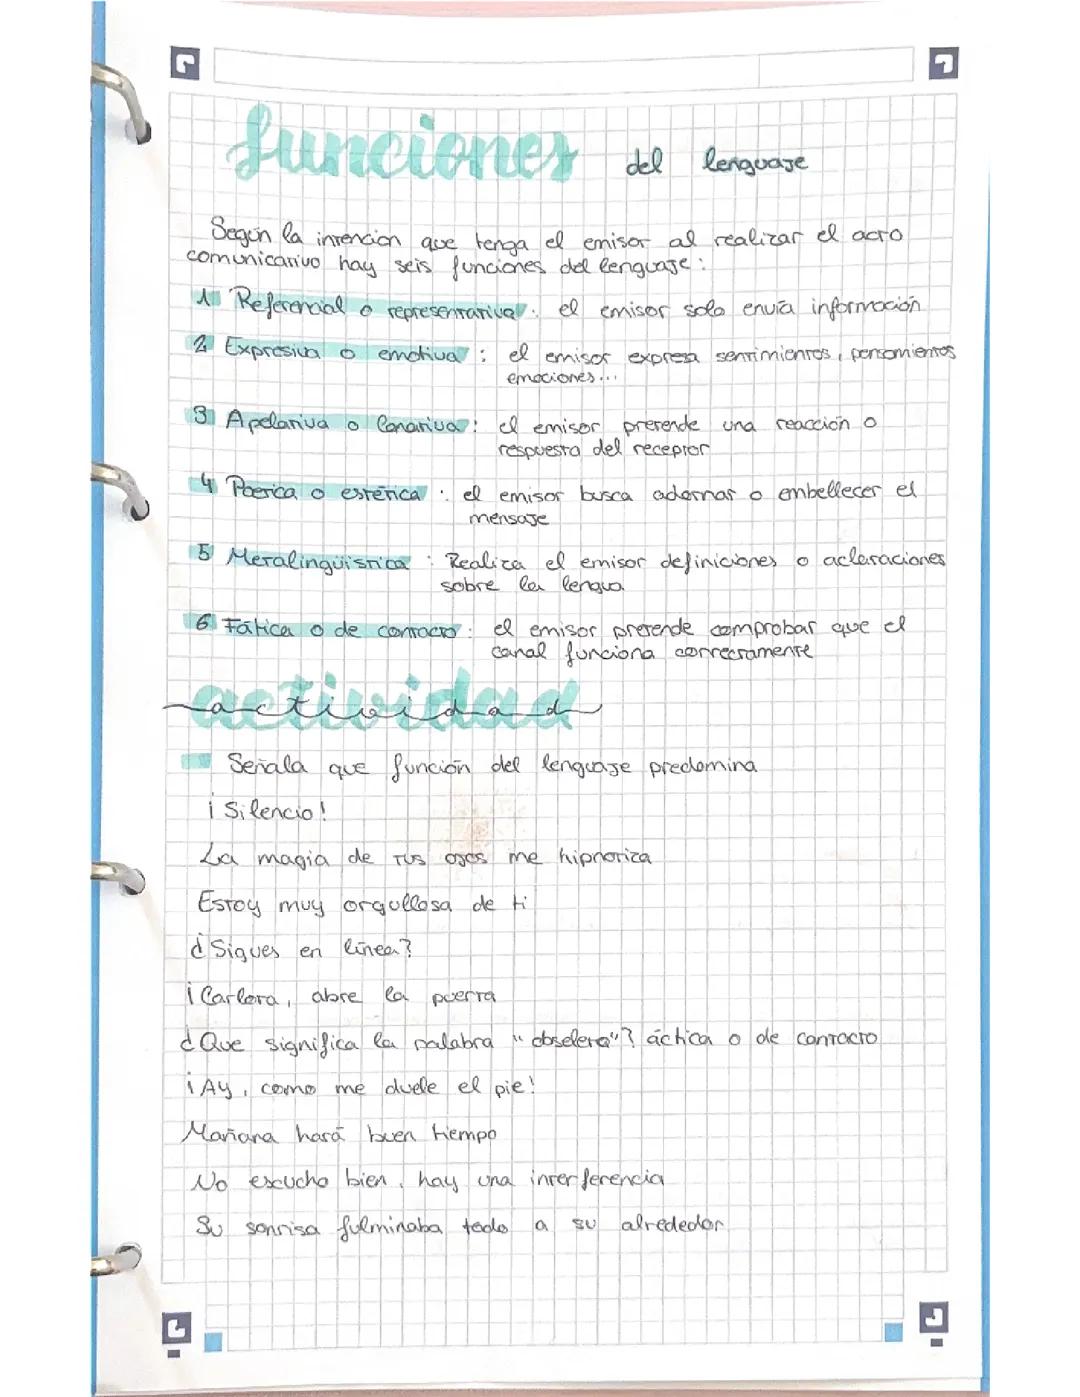 funciones del lenguaje
Según la intención que tenga el emisor al realizar el acto
comunicativo hay seis funciones del lenguaje:
1 Referencial o representativa: el emisor solo envía información
2 Expresiva o emotiva: el emisor expresa sentimientos, pensamientos
emociones...
3 Apelativa o Conativa: el emisor pretende una reacción o
respuesta del receptor
4 Poética o estética: el emisor busca adornar o embellecer el
mensaje
5 Metalingüística: Realiza el emisor definiciones o aclaraciones
sobre la lengua
6 Fática o de contacto: el emisor pretende comprobar que el
canal funciona correctamente
actividad
Señala que función del lenguaje predomina
¡Silencio!
La magia de tus ojos me hipnotiza
Estoy muy orgullosa de ti
¿Sigues en línea?
¡Carlota, abre la puerta
¿Que significa la palabra "obseleta"? áctica o de contacto
¡Ay, como me duele el pie!
Mañana hará buen tiempo
No escucho bien, hay una interferencia
Su sonrisa fulminaba todo a su alrededor